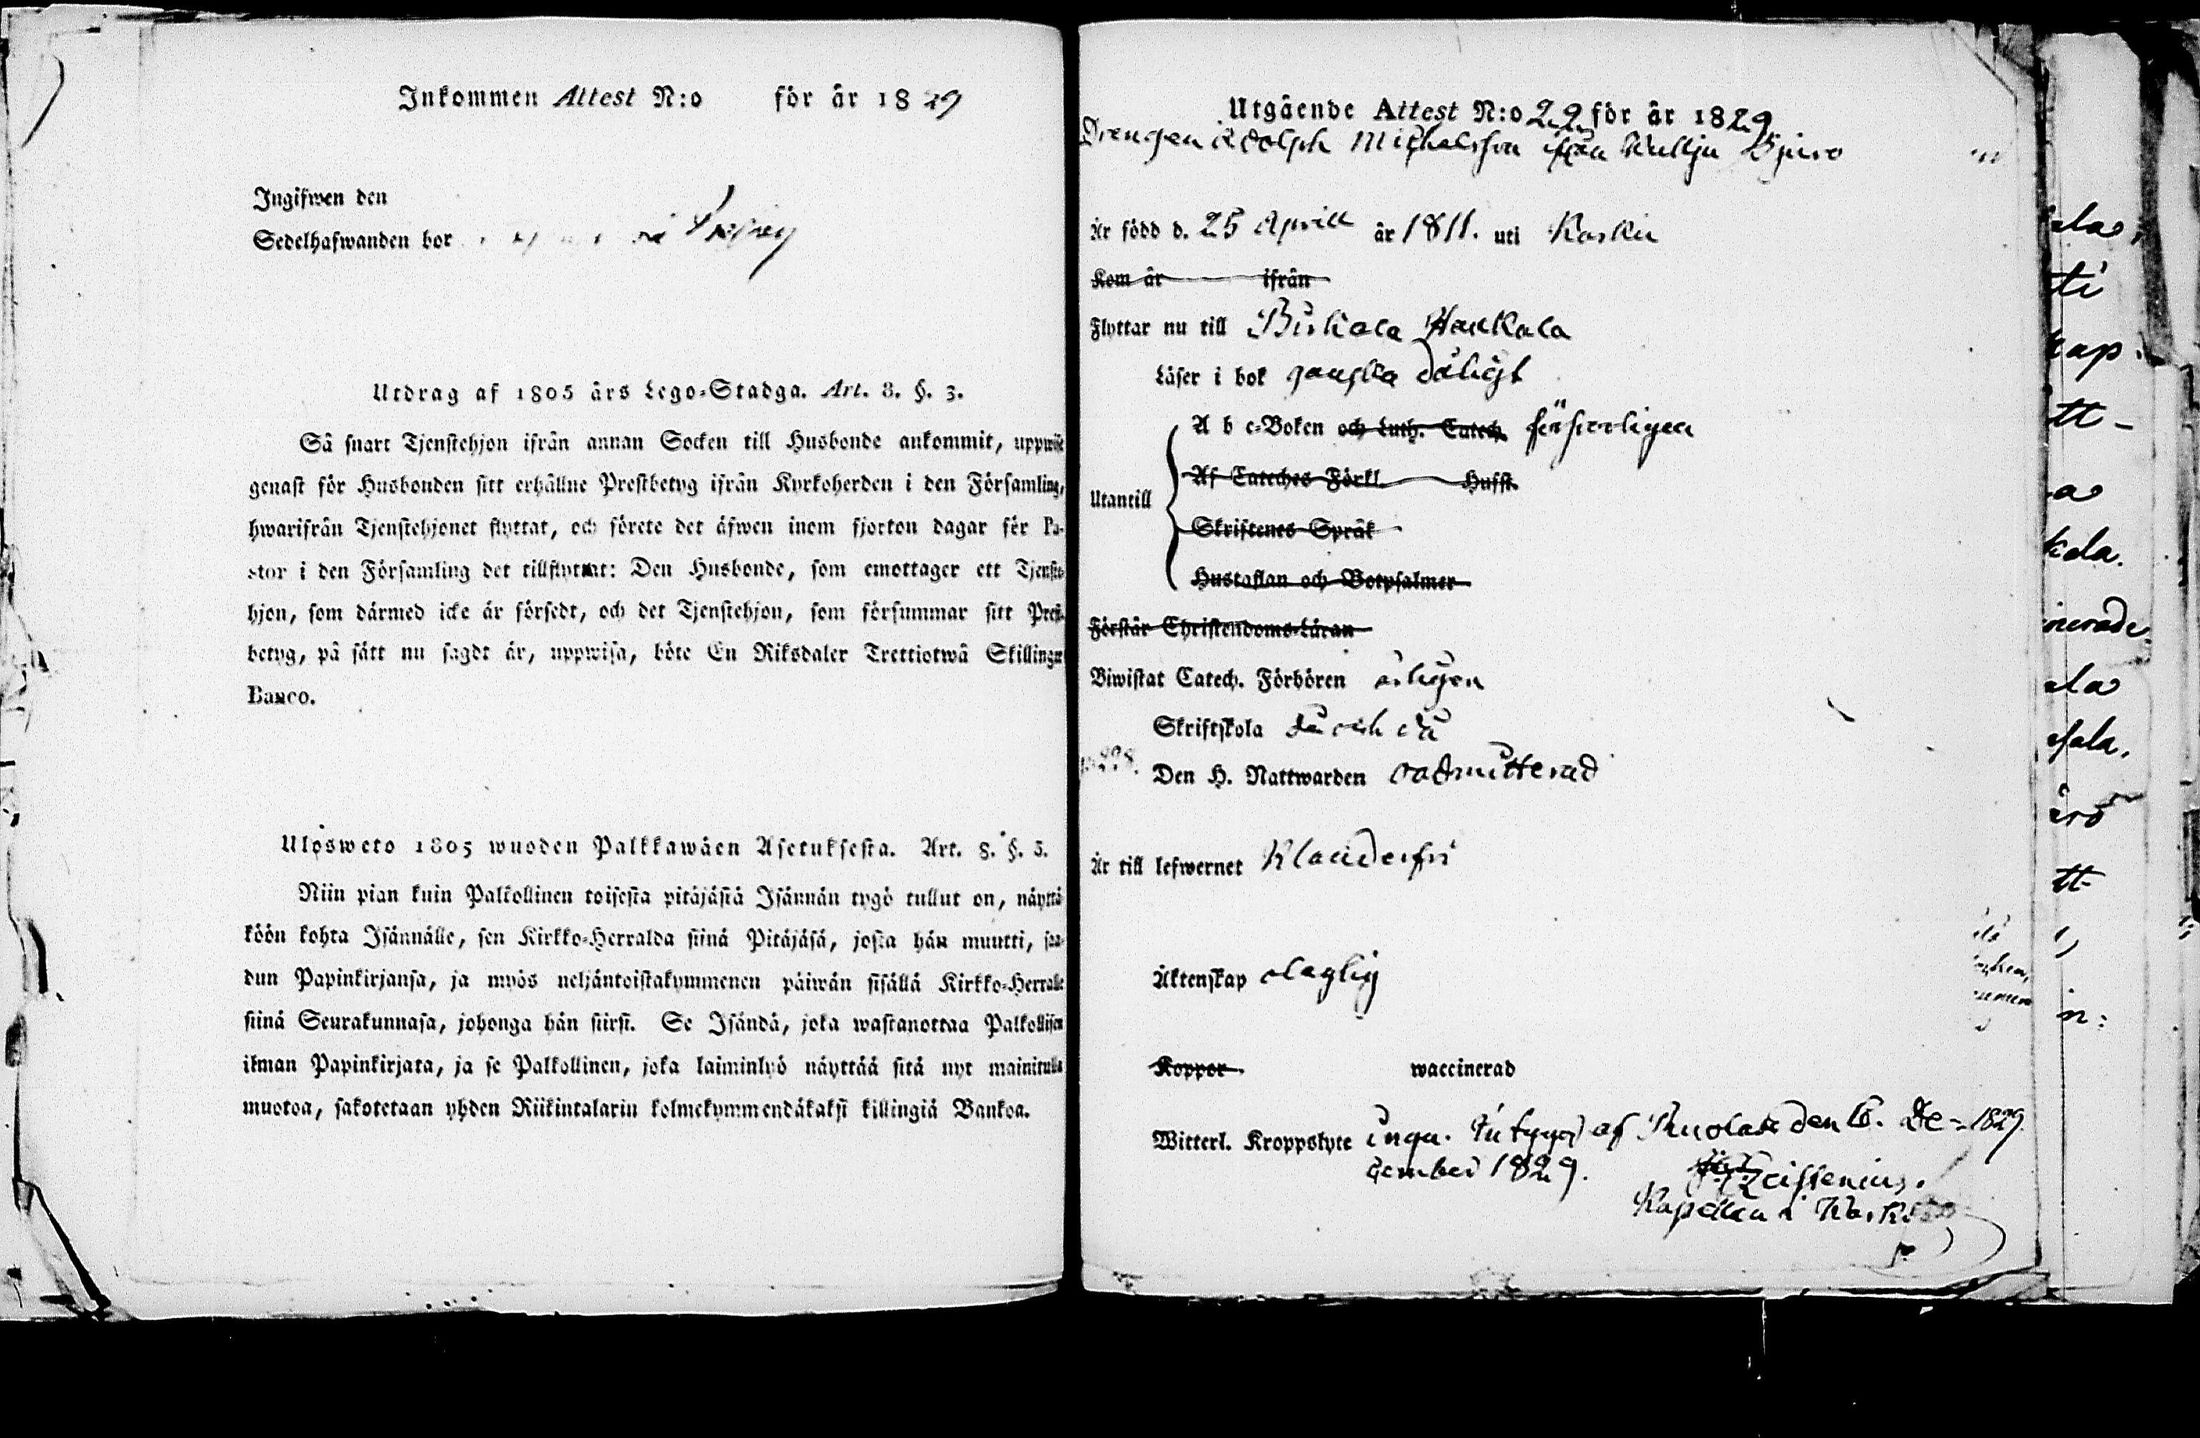 Inkommen Attest N:o för år 1829
Ingifwen den
Sedelhafwanden bor
Utdrag af 1805 års Lego-Stadga. Art. 8. §. 3.
Så snart Tjenstehjon ifrån annan Socken till Husbonde ankommit, uppwise
genast för Husbonden sitt erhållne Prestbetyg ifrån Kyrkoherden i den Församling,
hwarifrån Tjenstehjonet flyttat, och förete det äfwen inom fjorton dagar för Pa-
stor i den Församling det tillflyttat: Den Husbonde, som emottager ett Tjenste-
hjon, som därmed icke är försedt, och det Tjenstehjon, som försummar sitt Prest-
betyg, på sätt nu sagdt är, uppwisa, böte En Riksdaler Trettiotwå Skillingar
Banco.
Ulosweto 1805 wuoden Palkkawäen Asetuksesta. Art. 8. §. 3.
Niin pian kuin Palkollinen toisesta pitäjästä Isännän tygö tullut on, näyttä-
köön kohta Isännälle, sen Kirkko-Herralda siinä Pitäjäsä, josta hän muutti, saa-
dun Papinkirjansa, ja myös neljäntoistakymmenen päiwän sisällä Kirkko-Herralle
siinä Seurakunnasa, johonga hän siirsi. Se Isändä, joka wastanottaa Palkollisen
ilman Papinkirjata, ja se Palkollinen, joka laiminlyö näyttää sitä nyt mainitulla
muotoa, sakotetaan yhden Riikintalarin kolmekymmendäkaksi killingiä Bankoa.
Utgående Attest N:o 29 för år 1829
Drengen Adolph Michelsson ifrån Kullju Bjuro
Är född d. 25 Aprill år 1811. uti Karku
Kom år ifrån
Flyttar nu till Birkala Haukala
Läser i bok ganska dåligt
A b c-Boken och Luth. Catech. förswarligen
Af Cateches Förkl. Husst.
Utantill
Skriftenes Språk
Hustaflan och Botpsalmer
Förstår Christendoms-Läran
Biwistat Catech. Förhören årligen
Skriftskola då och då
Den H. Nattwarden oadmitterad
Är till lefwernet Klanderfri
Äktenskap olaglig
Koppor waccinerad
Witterl. Kroppslyte inga. betygar af den 16. De= 1829.
cember 1829.
Zeissenius.
Kapellan i Karku